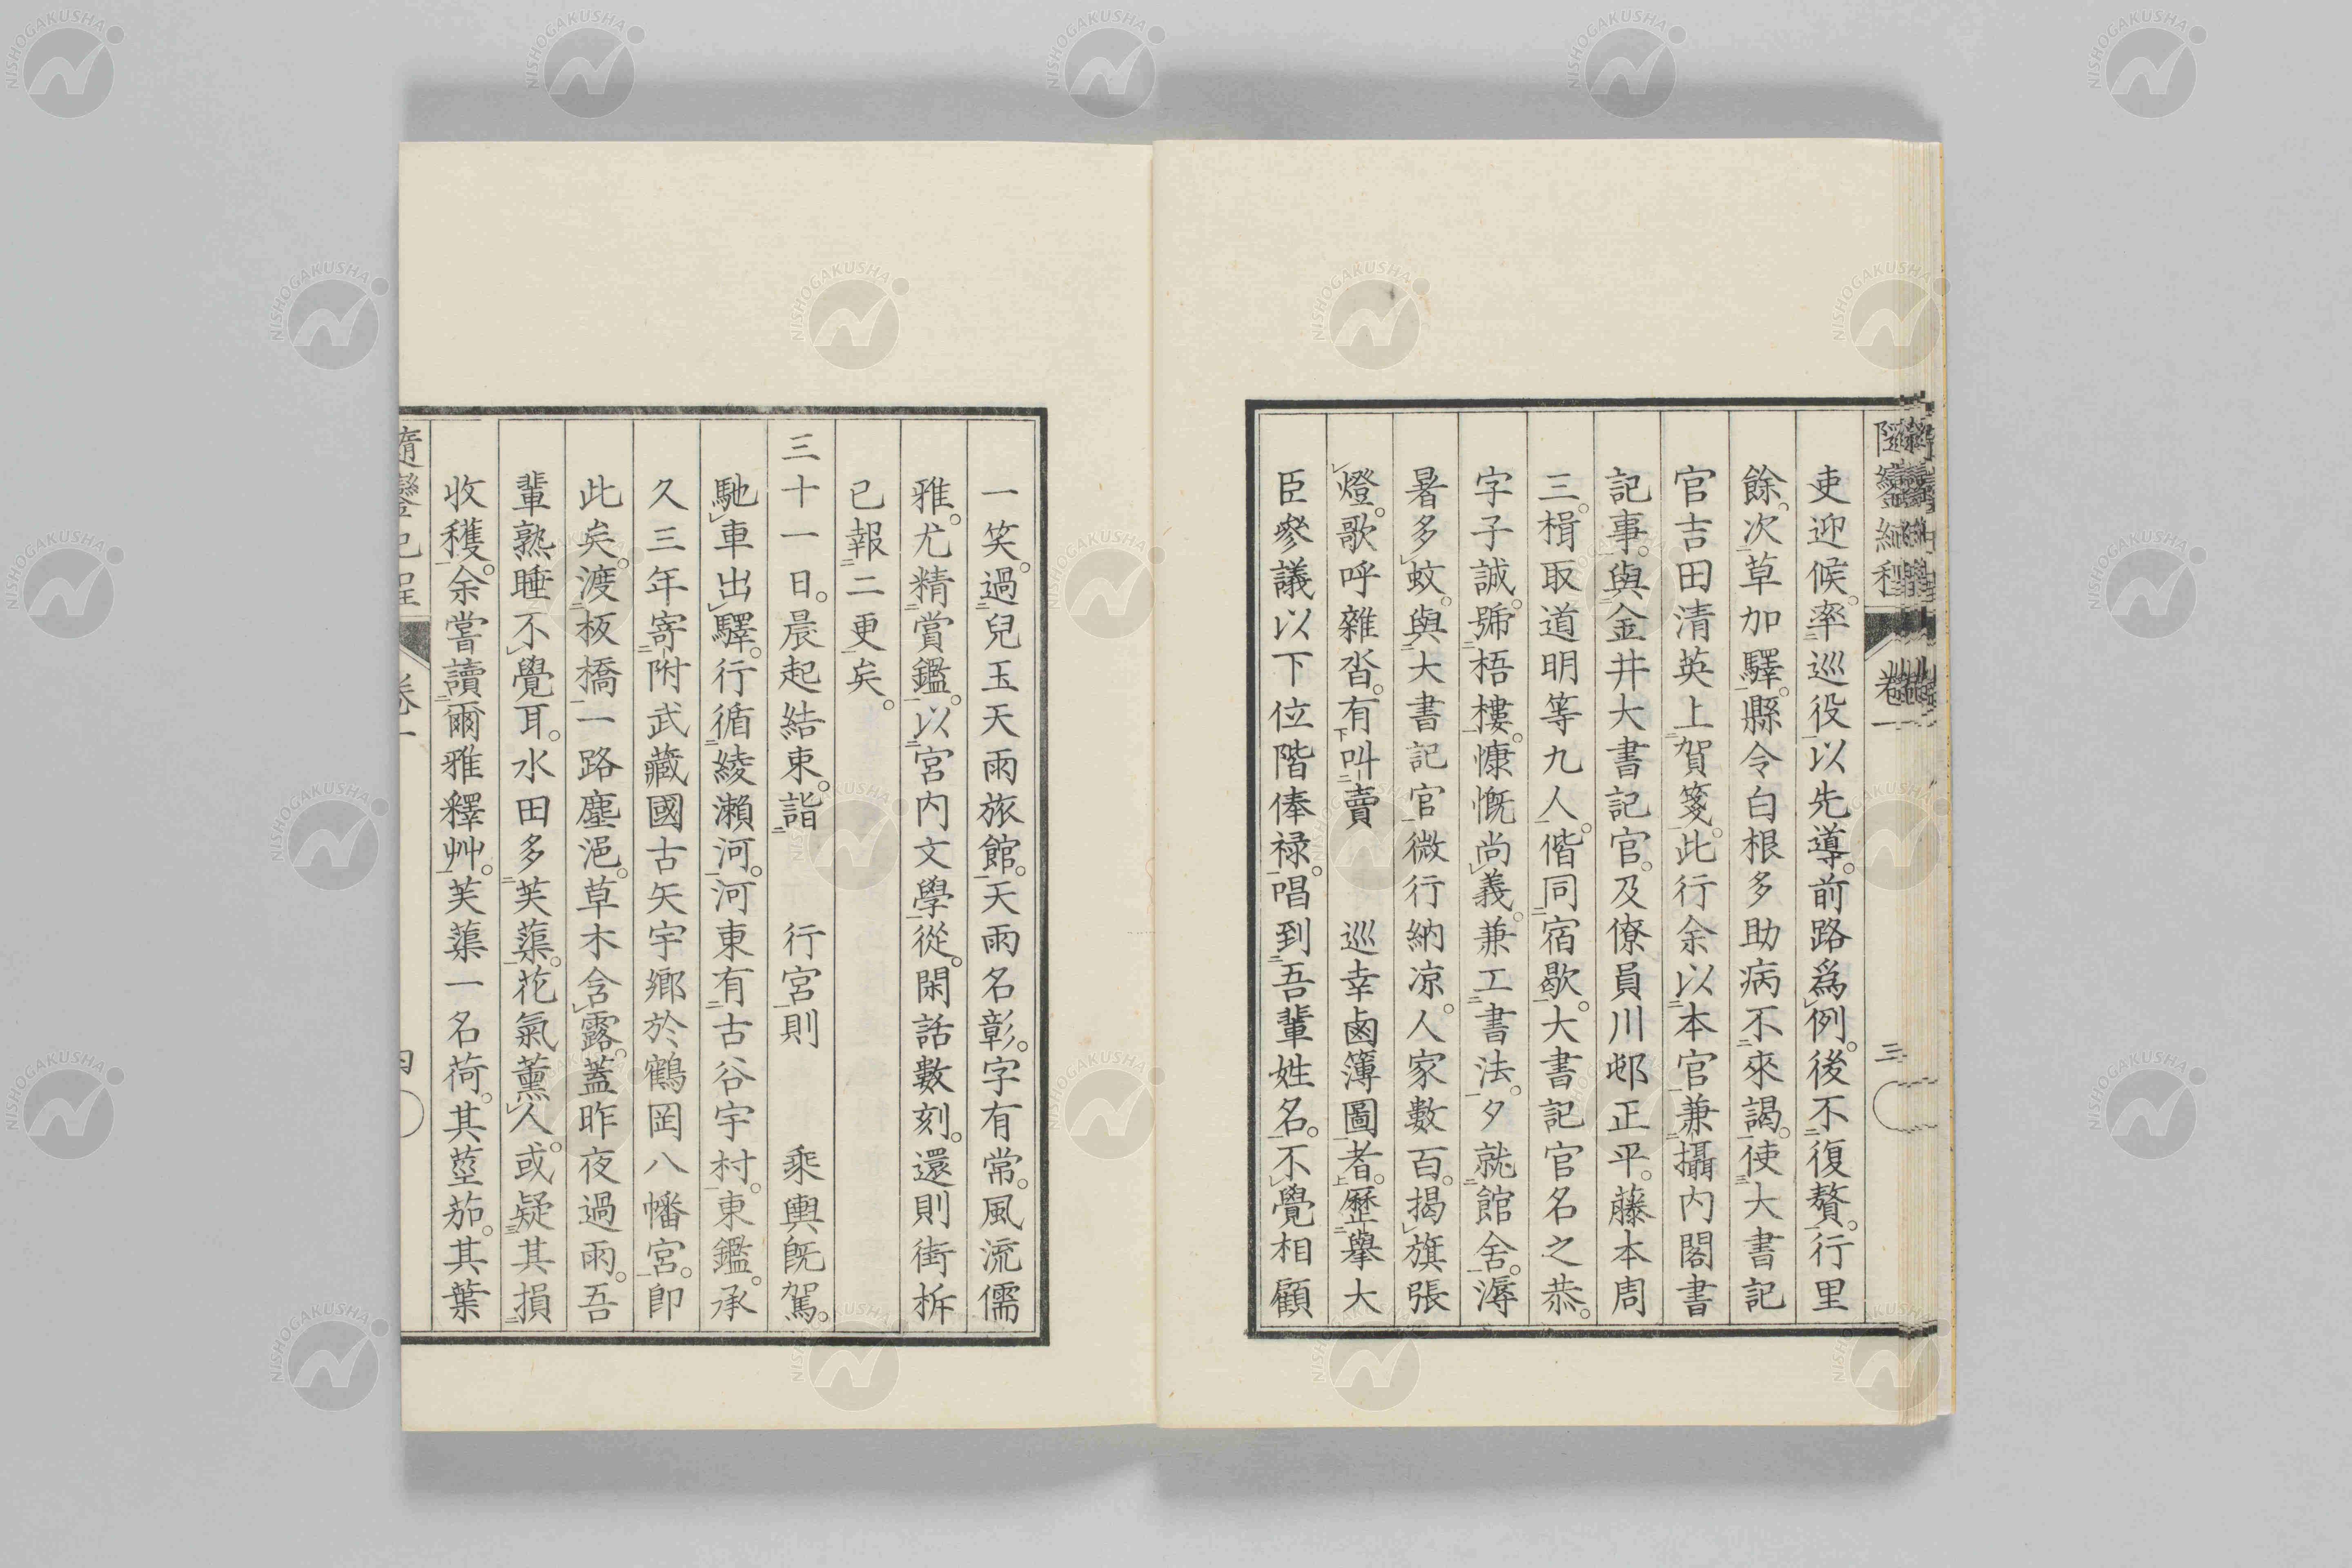 吏迎候。率巡役以先導。前路爲例。後不復贅。行里
餘。次草加驛。縣令白根多助病不來謁。使大書記
官吉田清英上賀箋。此行余以本官兼攝内閣書
記事。與金井大書記官。及僚員川邨正平。藤本周
三。楫取道明等九人。偕同宿歇。大書記官名之恭。
字子誠。號梧樓。慷慨尚義。兼工書法。夕就館舍。溽
暑多蚊。與大書記官微行納凉。人家數百。揭旗張
燈。歌呼雜沓。有叫賣　巡幸鹵簿圖者。歷擧大
臣參議以下位階俸禄。唱到吾輩姓名。不覺相顧
一笑。過兒玉天雨旅館。天雨名彰。字有常。風流儒
雅。尤精賞鑑。以宮内文學從。閑話數刻。還則街柝
已報二更矣。
三十一日。晨起結束。詣　行宮則　乘輿既駕。
馳車出驛。行循綾瀨河。河東有古谷宇村。東鑑。承
久三年寄附武藏國古矢宇鄉於鶴岡八幡宮。卽
此矣。渡板橋一路塵浥。草木含露。蓋昨夜過雨。吾
輩熟睡不覺耳。水田多芙蕖。花氣薰人。或疑其損
收穫。余嘗讀爾雅釋艸。芙蕖一名荷。其莖茄。其葉
隨鑾紀程　卷一　三
NISHOGAKUSHA